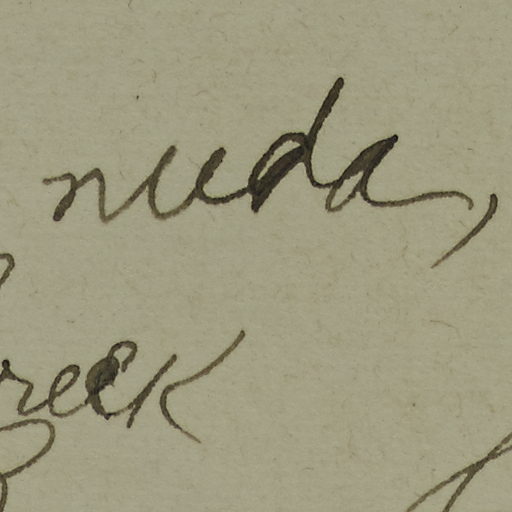 nuda,
reek